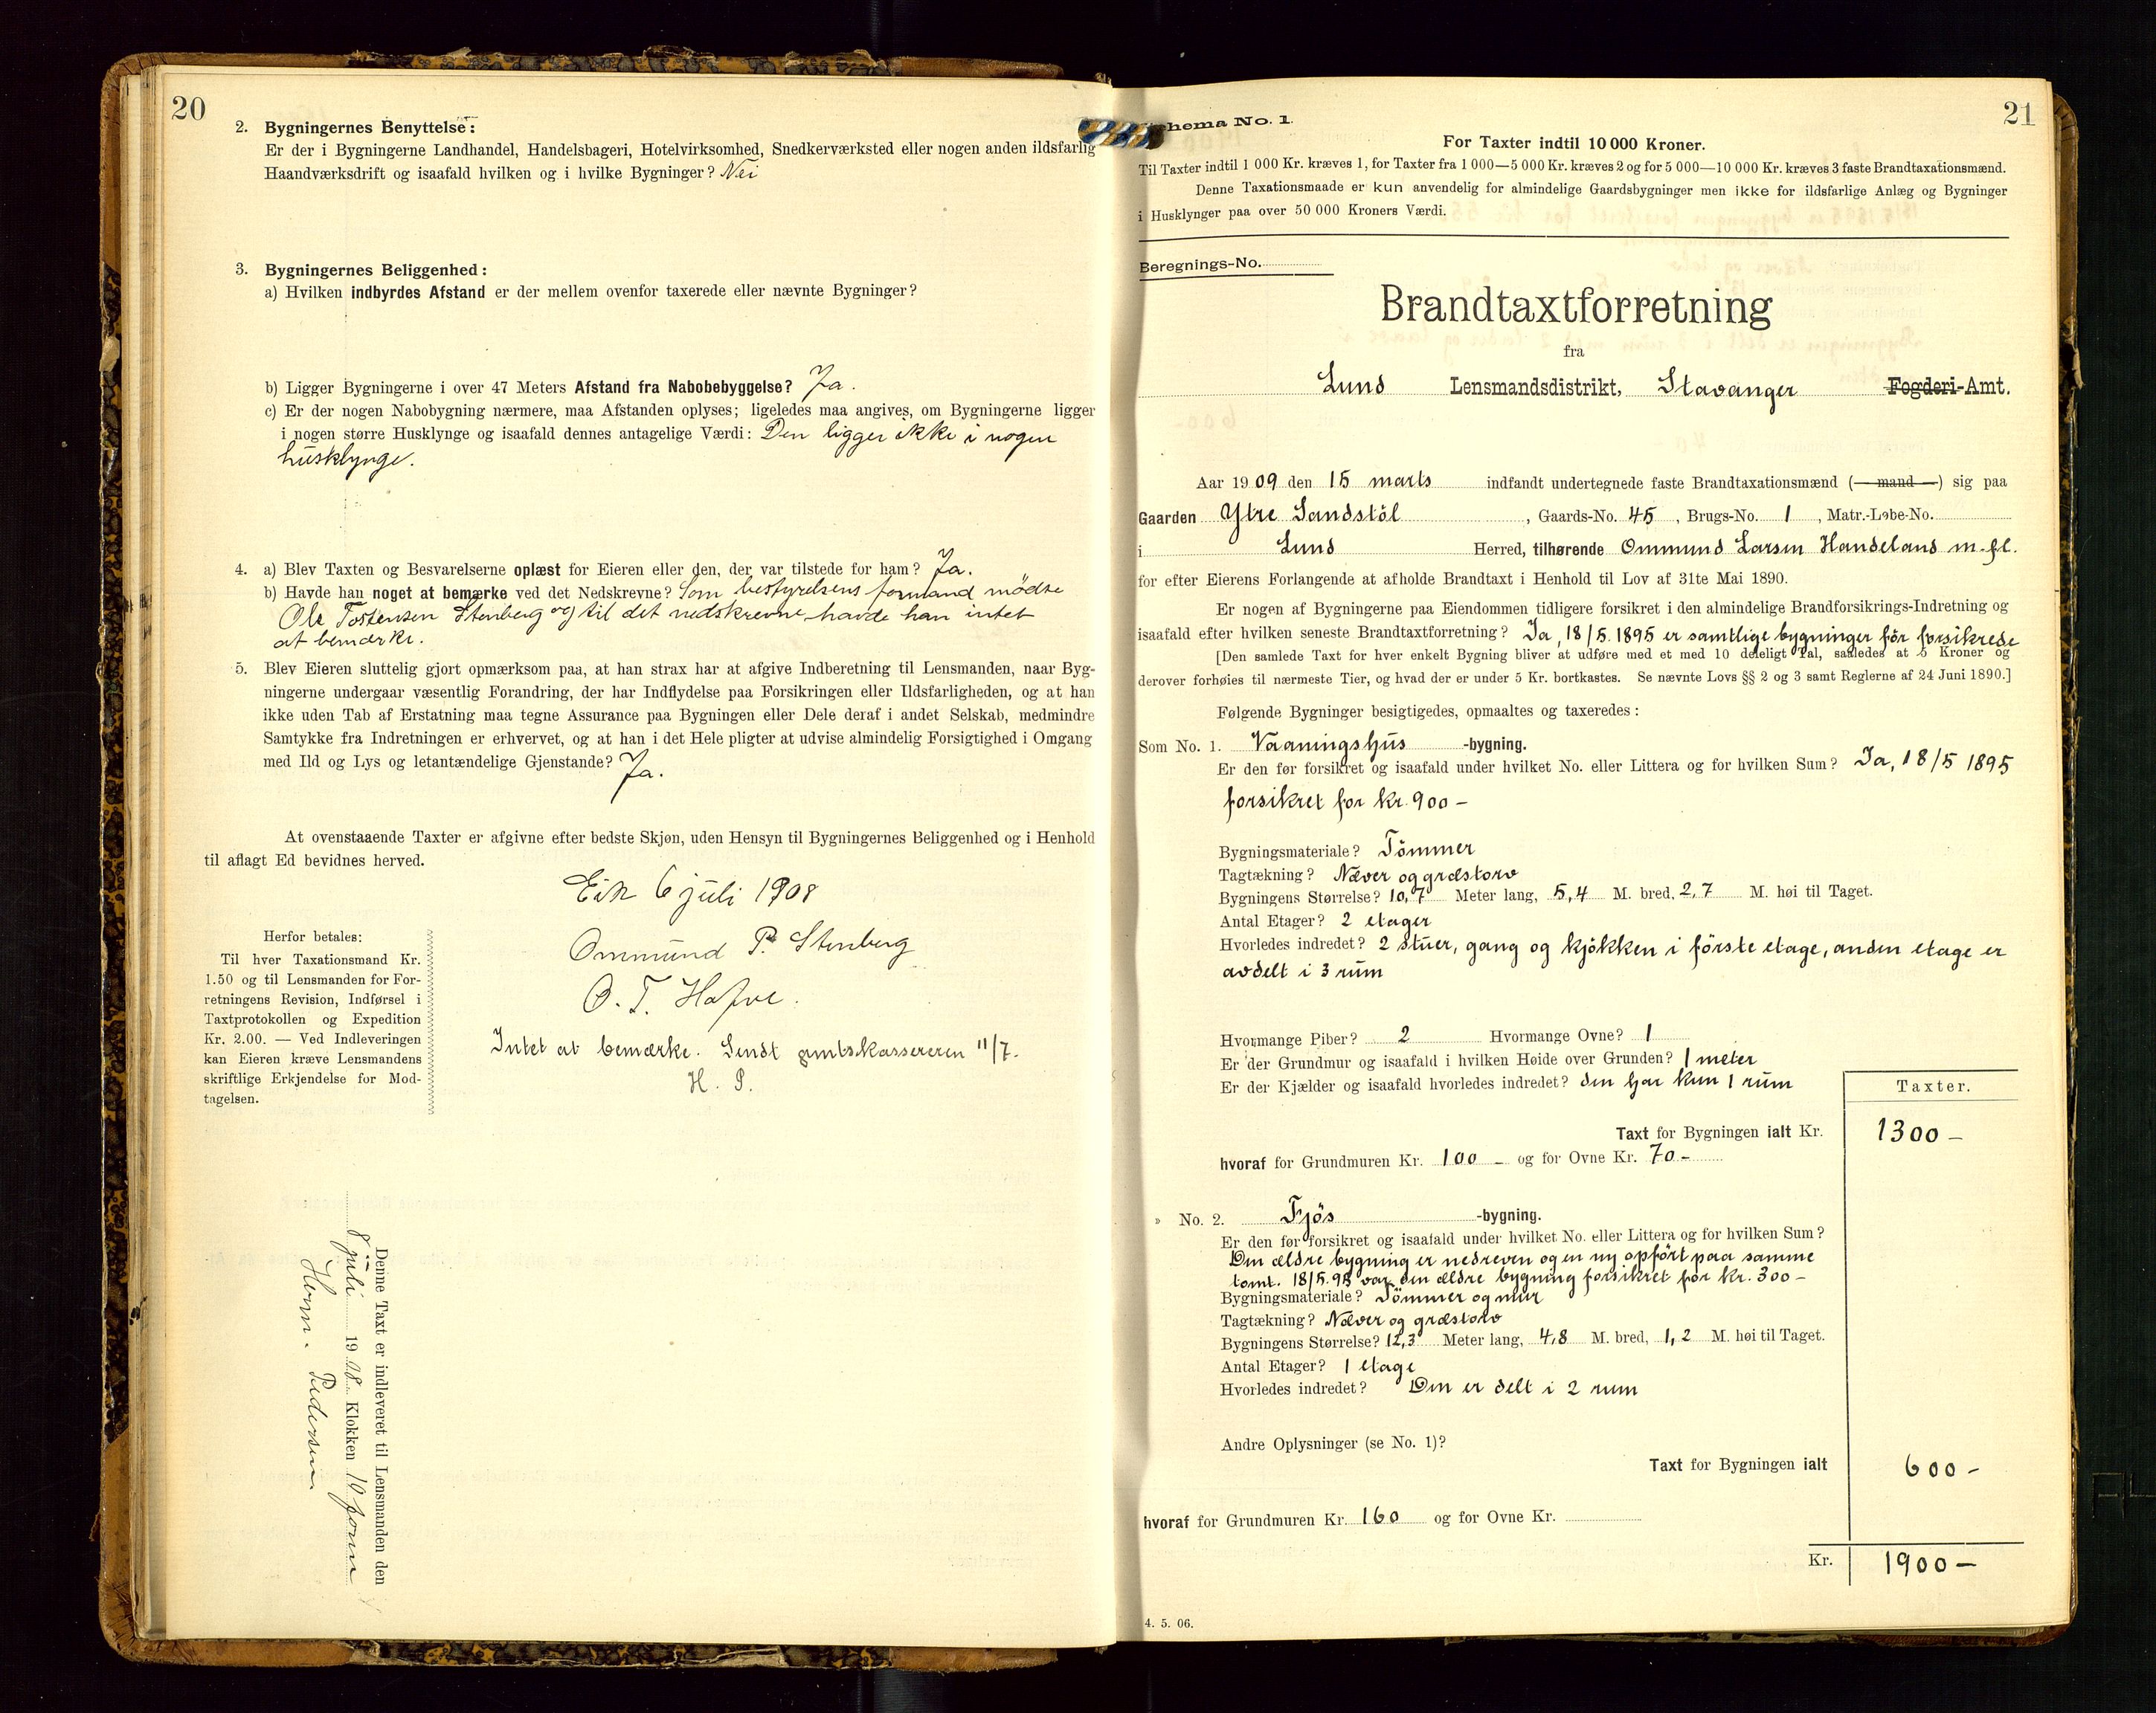 20
2. Bygningernes Benyttelse:
Er der i Bygningerne Landhandel, Handelsbageri, Hotelvirksomhed, Snedkerværksted eller nogen anden ildsfarlig
Haandværksdrift og isaafald hvilken og i hvilke Bygninger? Nei
3. Bygningernes Beliggenhed:
a) Hvilken indbyrdes Afstand er der mellem ovenfor taxerede eller nævnte Bygninger?
b) Ligger Bygningerne i over 47 Meters Afstand fra Nabobebyggelse? Ja.
c) Er der nogen Nabobygning nærmere, maa Afstanden oplyses; ligeledes maa angives, om Bygningerne ligger
i nogen større Husklynge og isaafald dennes antagelige Værdi: Den ligger ikke i nogen
husklynge.
4. a) Blev Taxten og Besvarelserne oplæst for Eieren eller den, der var tilstede for ham? Ja.
b) Havde han noget at bemærke ved det Nedskrevne? Som bestyrelsens formand mødte
Ole Tostensen Stenberg og til det nedskrevne havde han intet
at bemærke.
5. Blev Eieren sluttelig gjort opmærksom paa, at han strax har at afgive Indberetning til Lensmanden, naar Byg-
ningerne undergaar væsentlig Forandring, der har Indflydelse paa Forsikringen eller Ildsfarligheden, og at han
ikke uden Tab af Erstatning maa tegne Assurance paa Bygningen eller Dele deraf i andet Selskab, medmindre
Samtykke fra Indretningen er erhvervet, og at han i det Hele pligter at udvise almindelig Forsigtighed i Omgang
med Ild og Lys og letantændelige Gjenstande? Ja.
At ovenstaaende Taxter er afgivne efter bedste Skjøn, uden Hensyn til Bygningernes Beliggenhed og i Henhold
til aflagt Ed bevidnes herved.
Eik 6 juli 1908
Ommund P. Stenberg
O. T. Hafve.
Intet at bemærke. Sendt amtskassereren 11/7.
H. P.
Herfor betales:
Til hver Taxationsmand Kr.
1.50 og til Lensmanden for For-
retningens Revision, Indførsel i
Taxtprotokollen og Expedition
Kr. 2.00. — Ved Indleveringen
kan Eieren kræve Lensmandens
skriftlige Erkjendelse for Mod-
tagelsen.
Denne Taxt er indleveret til Lensmanden den
8 juli 1908 Klokken 10 form
Herm. Pedersen
21
Schema No. 1.
For Taxter indtil 10 000 Kroner.
Til Taxter indtil 1 000 Kr. kræves 1, for Taxter fra 1 000—5 000 Kr. kræves 2 og for 5 000—10 000 Kr. kræves 3 faste Brandtaxationsmænd.
Denne Taxationsmaade er kun anvendelig for almindelige Gaardsbygninger men ikke for ildsfarlige Anlæg og Bygninger
i Husklynger paa over 50 000 Kroners Værdi.
Beregnings-No.
Brandtaxtforretning
fra
Lund Lensmandsdistrikt, Stavanger Fogderi-Amt.
Aar 1909 den 15 marts indfandt undertegnede faste Brandtaxationsmænd (— mand —) sig paa
Gaarden Ytre Sandstöl, Gaards-No. 45, Brugs-No. 1, Matr.-Løbe-No.
i Lund Herred, tilhørende Ommund Larsen Handeland m. fl.
for efter Eierens Forlangende at afholde Brandtaxt i Henhold til Lov af 31te Mai 1890.
Er nogen af Bygningerne paa Eiendommen tidligere forsikret i den almindelige Brandforsikrings-Indretning og
isaafald efter hvilken seneste Brandtaxtforretning? Ja, 18/5 1895 er samtlige bygninger før forsikrede
[Den samlede Taxt for hver enkelt Bygning bliver at udføre med et med 10 deleligt Tal, saaledes at 5 Kroner og
derover forhøies til nærmeste Tier, og hvad der er under 5 Kr. bortkastes. Se nævnte Lovs §§ 2 og 3 samt Reglerne af 24 Juni 1890.]
Følgende Bygninger besigtigedes, opmaaltes og taxeredes:
Som No. 1. Vaaningshus -bygning.
Er den før forsikret og isaafald under hvilket No. eller Littera og for hvilken Sum? Ja, 18/5 1895
forsikret for kr. 900 -
Bygningsmateriale? Tömmer
Tagtækning? Næver og græstorv
Bygningens Størrelse? 10,7 Meter lang, 5,4 M. bred, 2,7 M. høi til Taget.
Antal Etager? 2 etager
Hvorledes indredet? 2 stuer, gang og kjökken i förste etage, anden etage er
avdelt i 3 rum
Hvormange Piber? 2 Hvormange Ovne? 1
Er der Grundmur og isaafald i hvilken Høide over Grunden? 1 meter
Er der Kjælder og isaafald hvorledes indredet? den har kun 1 rum
Taxter.
Taxt for Bygningen ialt Kr. 1300 -
hvoraf for Grundmuren Kr. 100 - og for Ovne Kr. 70 -
» No. 2. Fjös -bygning.
Er den før forsikret og isaafald under hvilket No. eller Littera og for hvilken Sum?
Den ældre bygning er nedreven og en ny opført paa samme
tomt. 18/5.95 var den ældre bygning forsikret for kr. 300 -
Bygningsmateriale? Tömmer og mur
Tagtækning? Næver og græstorv
Bygningens Størrelse? 12,3 Meter lang, 4,8 M. bred, 1,2 M. høi til Taget.
Antal Etager? 1 etage
Hvorledes indredet? Den er delt i 2 rum
Andre Oplysninger (se No. 1)?
Taxt for Bygningen ialt 600 -
hvoraf for Grundmuren Kr. 160 og for Ovne Kr.
Kr. 1900 -
4. 5. 06.